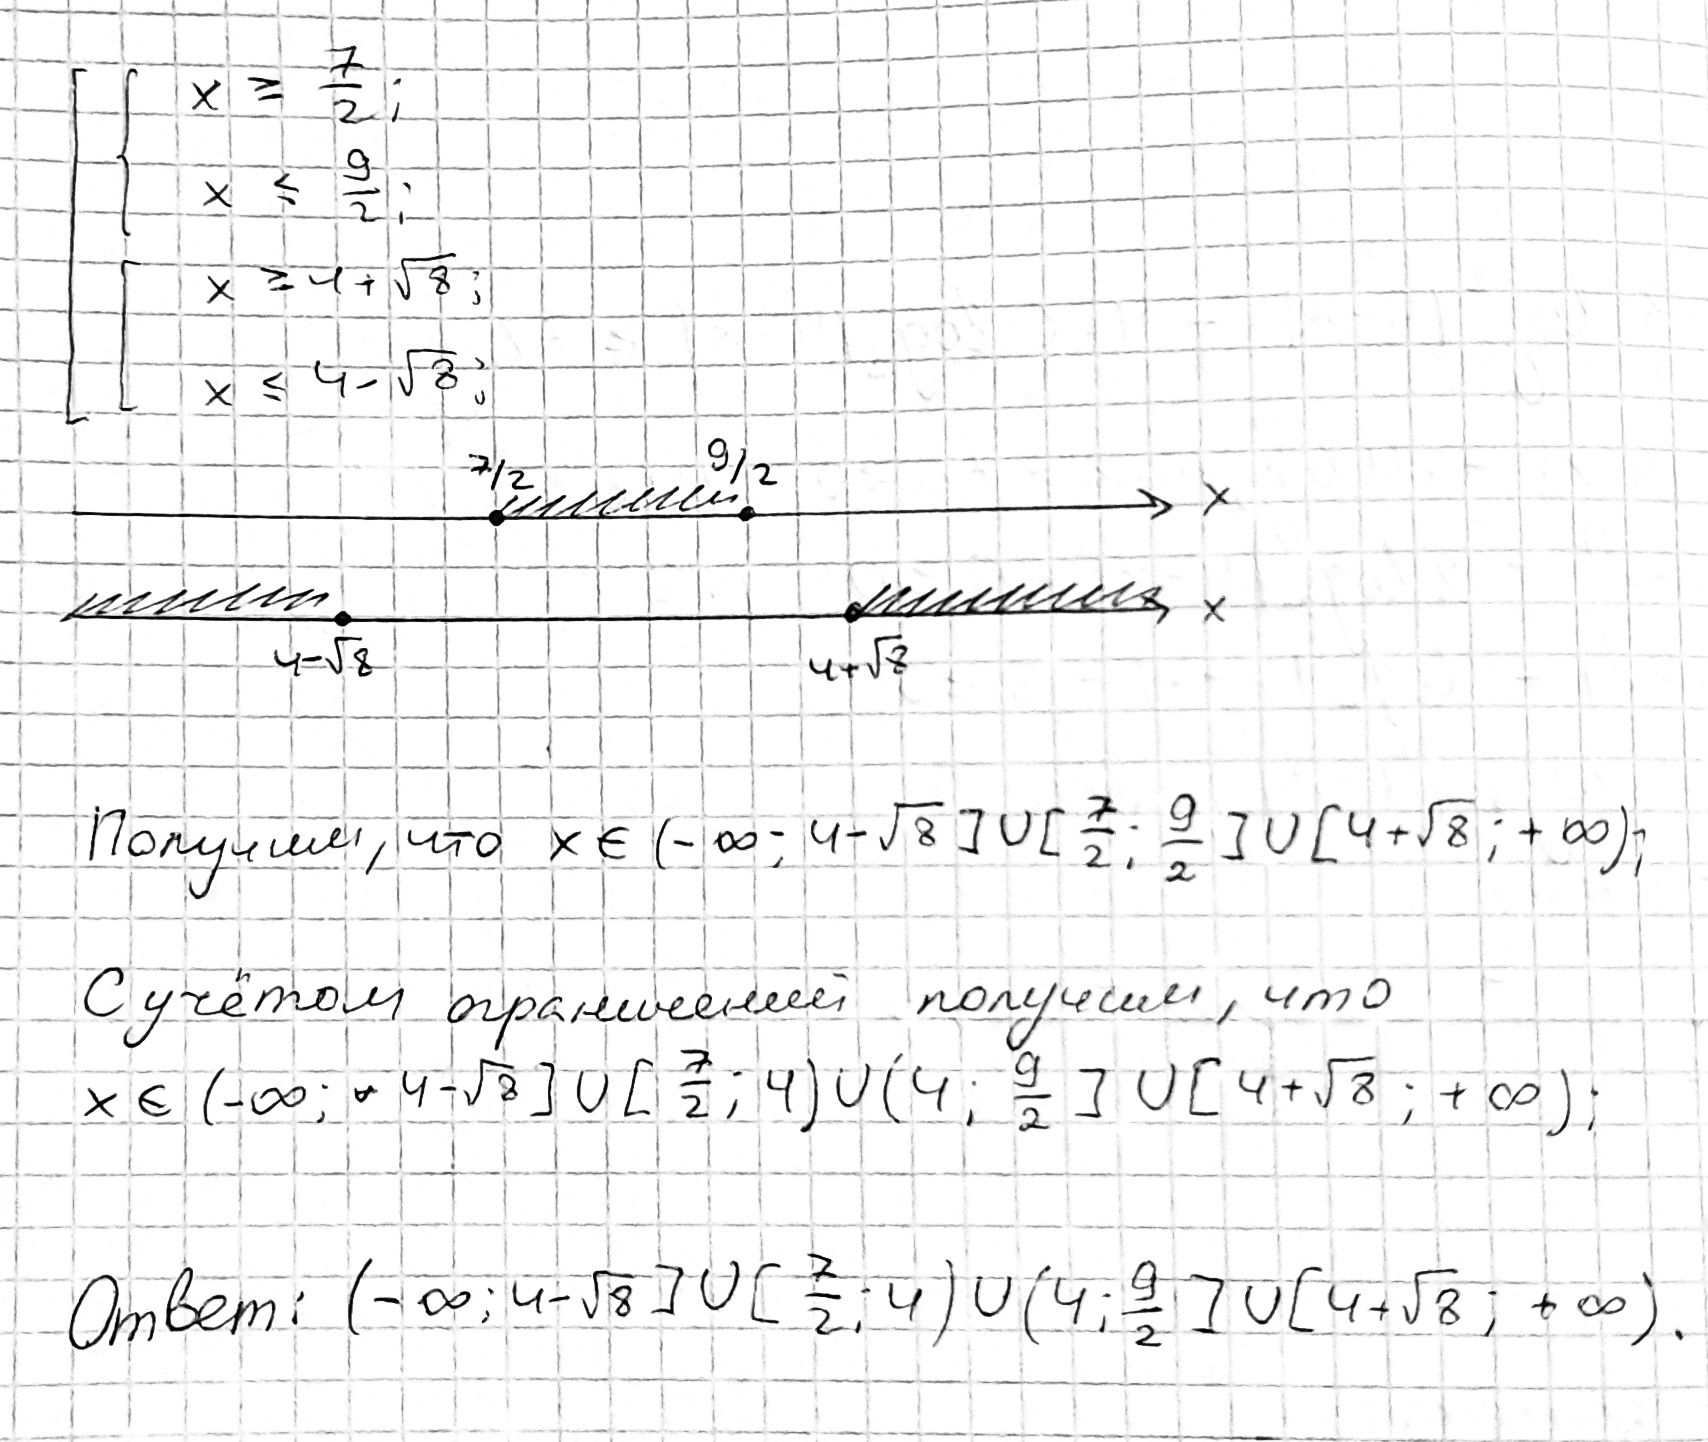 x ≥ 7/2;
x ≤ 9/2;
x ≥ 4+√8;
x ≤ 4-√8;
7/2 9/2 x
4-√8 4+√8 x
Получим, что x ∈ (-∞; 4-√8] ∪ [7/2; 9/2] ∪ [4+√8; +∞);
С учётом ограничений получим, что
x ∈ (-∞; 4-√8] ∪ [7/2; 4) ∪ (4; 9/2] ∪ [4+√8; +∞);
Ответ: (-∞; 4-√8] ∪ [7/2; 4) ∪ (4; 9/2] ∪ [4+√8; +∞).